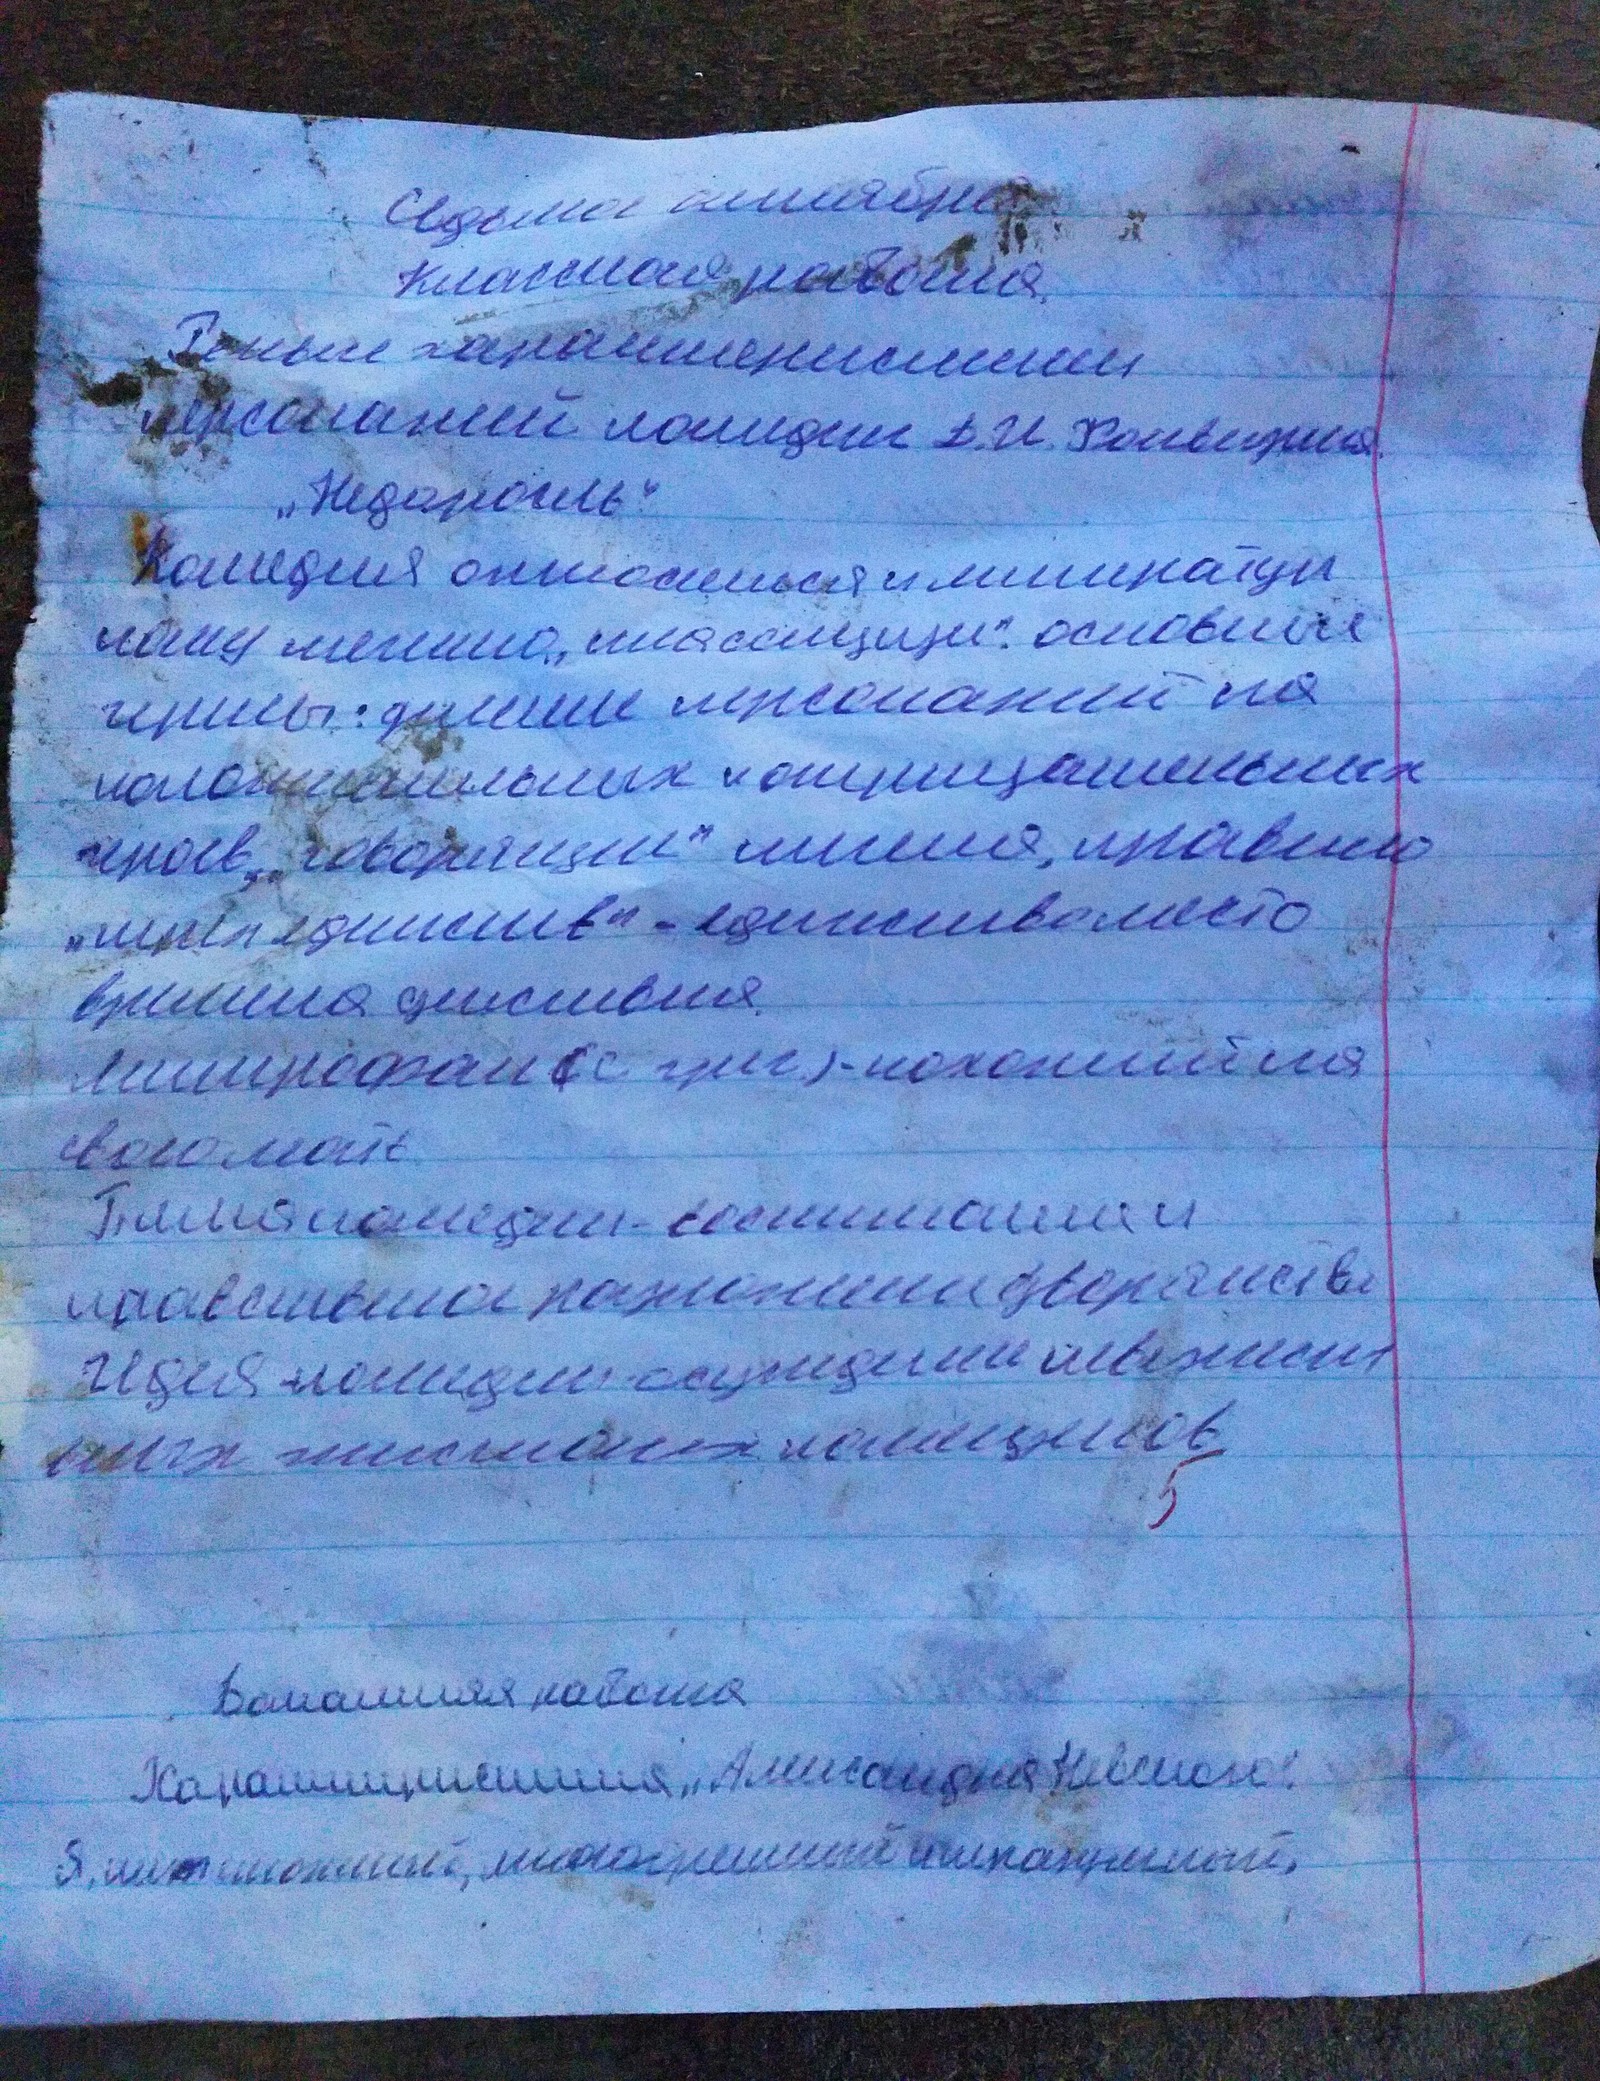 Седьмо октября
Классная работа.
Речные характеристики
персонажей комедии Д.И. Фонвизина.
„Недоросль"
Комедия относиться к литерату
ному „классицизм". основные
черты: деление персонажей на
положительных и отрицательных
героев, „говорящии" имена, правило
„трёх единств" - единства место
времена действия.
Митрофан (с греч) - похожий на
свою мать
Тема комедии - воспитания и
нравственное разложения дворянства
Идея комедии - осуждение невежест
жестоких помещиков
5
Домашняя работа
Характеристика „Александра Невского".
многогрешный